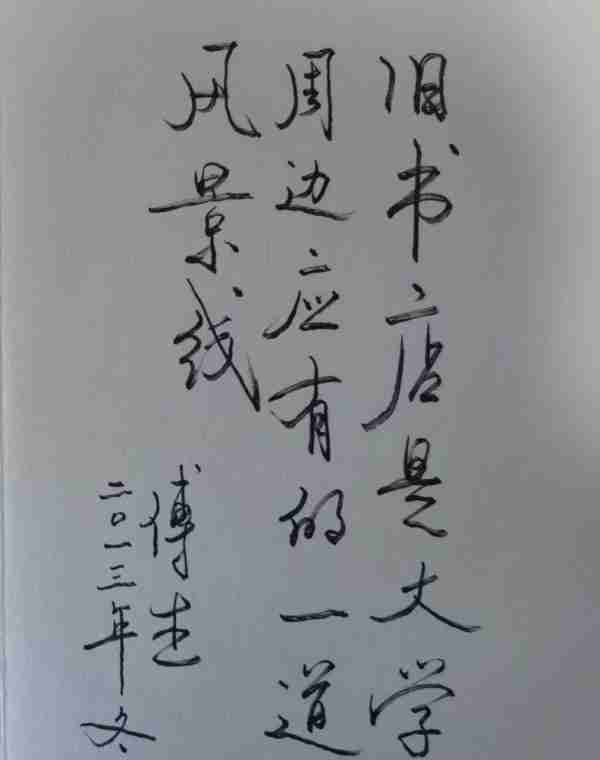 旧书店是大学
周边应有的一道
风景线
傅生
二〇一三年冬